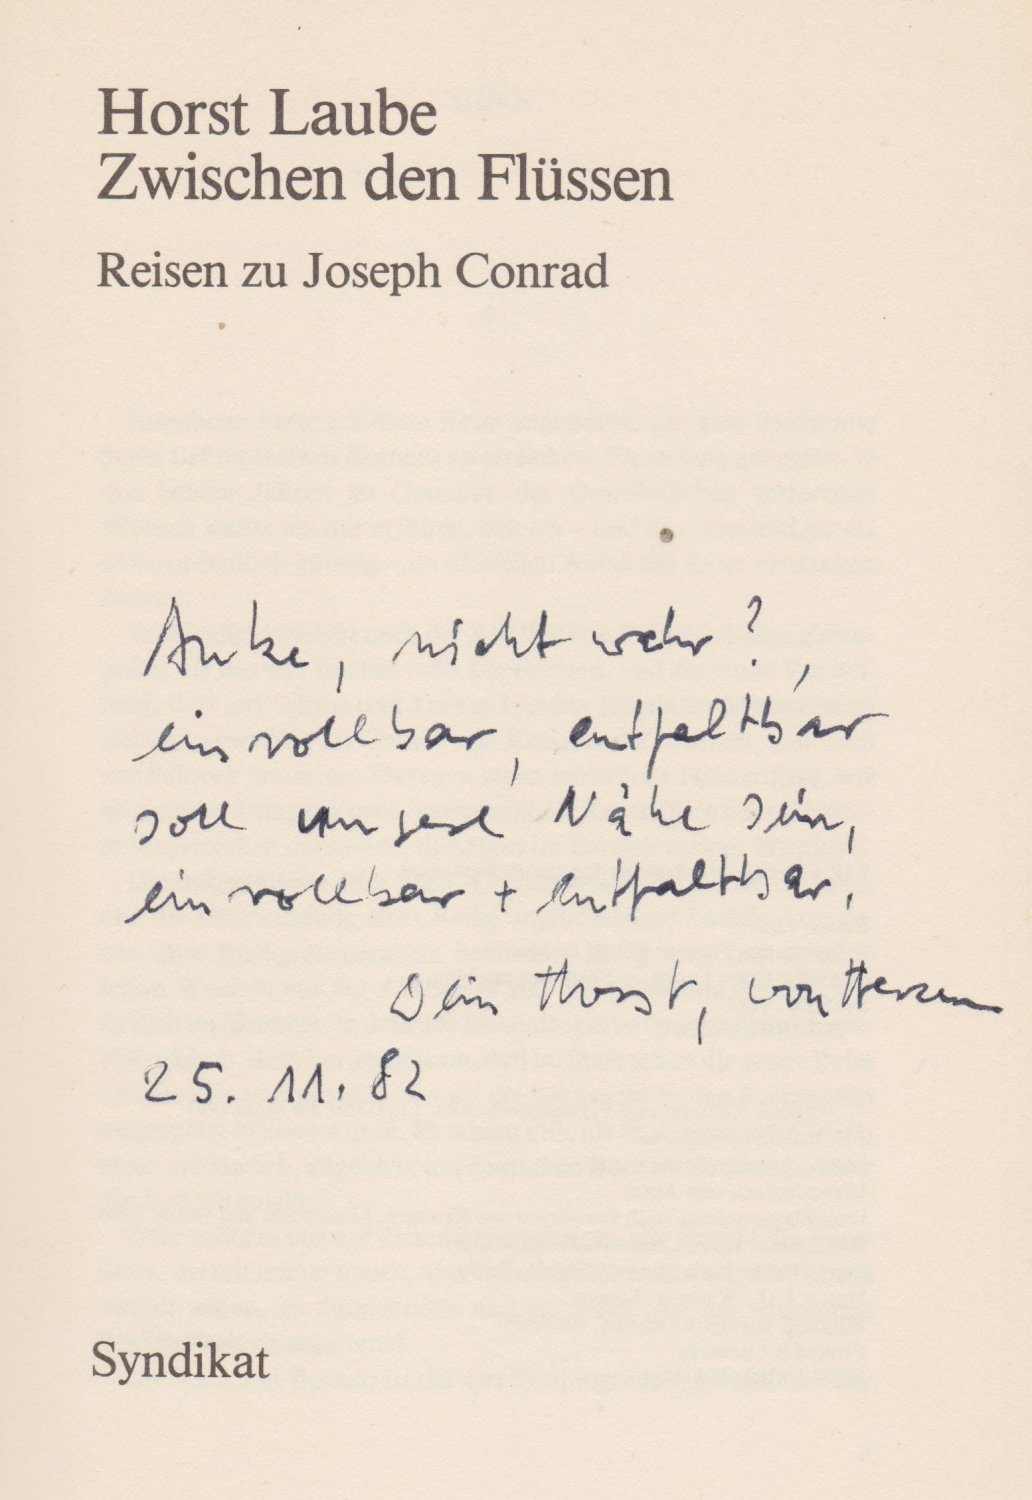 Horst Laube
Zwischen den Flüssen
Reisen zu Joseph Conrad
Anke, nicht wahr?,
einrollbar, entfaltbar
soll unsere Nähe sein,
einrollbar + entfaltbar.
Dein Horst, von Herzen
25. 11. 82
Syndikat